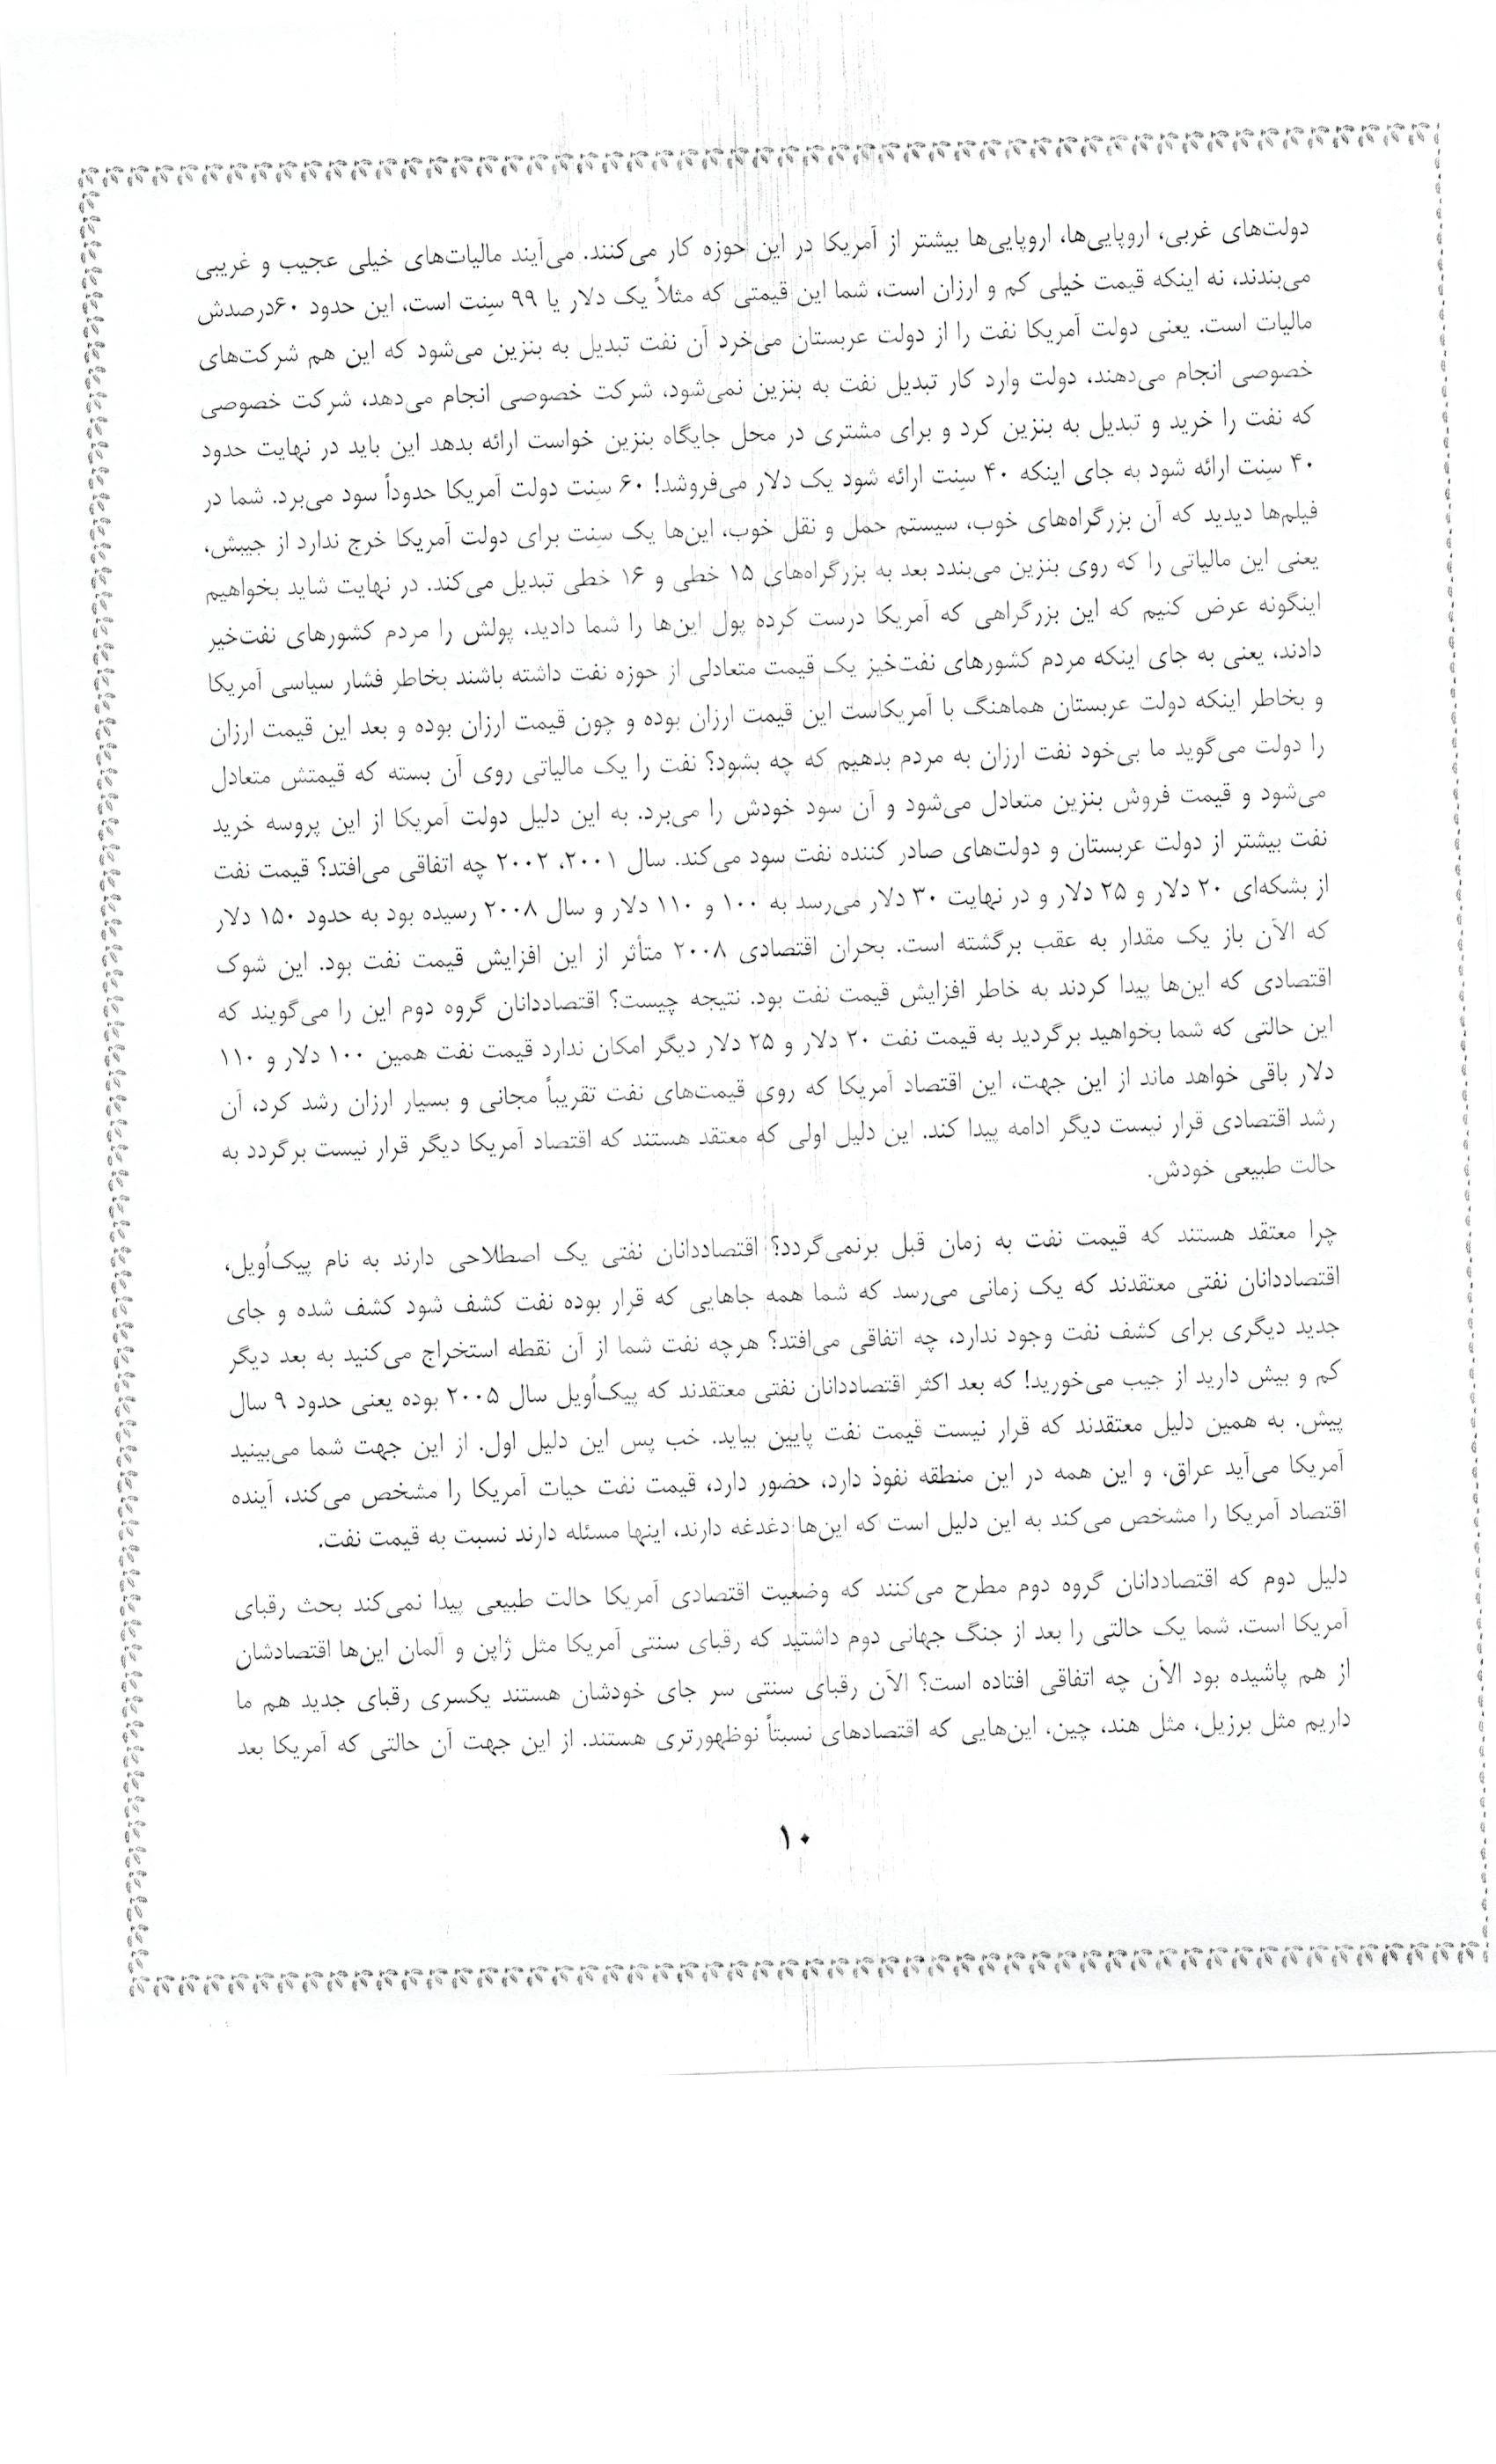 دولت‌های غربی، اروپایی‌ها، اروپایی‌ها بیشتر از آمریکا در این حوزه کار می‌کنند. می‌آیند مالیات‌های خیلی عجیب و غریبی
می‌بندند، نه اینکه قیمت خیلی کم و ارزان است، شما این قیمتی که مثلاً یک دلار یا ۹۹ سِنت است، این حدود ۶۰درصدش
مالیات است. یعنی دولت آمریکا نفت را از دولت عربستان می‌خرد آن نفت تبدیل به بنزین می‌شود که این هم شرکت‌های
خصوصی انجام می‌دهند، دولت وارد کار تبدیل نفت به بنزین نمی‌شود، شرکت خصوصی انجام می‌دهد، شرکت خصوصی
که نفت را خرید و تبدیل به بنزین کرد و برای مشتری در محل جایگاه بنزین خواست ارائه بدهد این باید در نهایت حدود
۴۰ سِنت ارائه شود به جای اینکه ۴۰ سِنت ارائه شود یک دلار می‌فروشد! ۶۰ سِنت دولت آمریکا حدوداً سود می‌برد. شما در
فیلم‌ها دیدید که آن بزرگراه‌های خوب، سیستم حمل و نقل خوب، این‌ها یک سِنت برای دولت آمریکا خرج ندارد از جیبش،
یعنی این مالیاتی را که روی بنزین می‌بندد بعد به بزرگراه‌های ۱۵ خطی و ۱۶ خطی تبدیل می‌کند. در نهایت شاید بخواهیم
اینگونه عرض کنیم که این بزرگراهی که آمریکا درست کرده پول این‌ها را شما دادید، پولش را مردم کشورهای نفت‌خیر
دادند، یعنی به جای اینکه مردم کشورهای نفت‌خیز یک قیمت متعادلی از حوزه نفت داشته باشند بخاطر فشار سیاسی آمریکا
و بخاطر اینکه دولت عربستان هماهنگ با آمریکاست این قیمت ارزان بوده و چون قیمت ارزان بوده و بعد این قیمت ارزان
را دولت می‌گوید ما بی‌خود نفت ارزان به مردم بدهیم که چه بشود؟ نفت را یک مالیاتی روی آن بسته که قیمتش متعادل
می‌شود و قیمت فروش بنزین متعادل می‌شود و آن سود خودش را می‌برد. به این دلیل دولت آمریکا از این پروسه خرید
نفت بیشتر از دولت عربستان و دولت‌های صادر کننده نفت سود می‌کند. سال ۲۰۰۱، ۲۰۰۲ چه اتفاقی می‌افتد؟ قیمت نفت
از بشکه‌ای ۲۰ دلار و ۲۵ دلار و در نهایت ۳۰ دلار می‌رسد به ۱۰۰ و ۱۱۰ دلار و سال ۲۰۰۸ رسیده بود به حدود ۱۵۰ دلار
که الآن باز یک مقدار به عقب برگشته است. بحران اقتصادی ۲۰۰۸ متأثر از این افزایش قیمت نفت بود. این شوک
اقتصادی که این‌ها پیدا کردند به خاطر افزایش قیمت نفت بود. نتیجه چیست؟ اقتصاددانان گروه دوم این را می‌گویند که
این حالتی که شما بخواهید برگردید به قیمت نفت ۲۰ دلار و ۲۵ دلار دیگر امکان ندارد قیمت نفت همین ۱۰۰ دلار و ۱۱۰
دلار باقی خواهد ماند از این جهت، این اقتصاد آمریکا که روی قیمت‌های نفت تقریباً مجانی و بسیار ارزان رشد کرد، آن
رشد اقتصادی قرار نیست دیگر ادامه پیدا کند. این دلیل اولی که معتقد هستند که اقتصاد آمریکا دیگر قرار نیست برگردد به
حالت طبیعی خودش.
چرا معتقد هستند که قیمت نفت به زمان قبل برنمی‌گردد؟ اقتصاددانان نفتی یک اصطلاحی دارند به نام پیک‌اُویل،
اقتصاددانان نفتی معتقدند که یک زمانی می‌رسد که شما همه جاهایی که قرار بوده نفت کشف شود کشف شده و جای
جدید دیگری برای کشف نفت وجود ندارد، چه اتفاقی می‌افتد؟ هرچه نفت شما از آن نقطه استخراج می‌کنید به بعد دیگر
کم و بیش دارید از جیب می‌خورید! که بعد اکثر اقتصاددانان نفتی معتقدند که پیک‌اُویل سال ۲۰۰۵ بوده یعنی حدود ۹ سال
پیش. به همین دلیل معتقدند که قرار نیست قیمت نفت پایین بیاید. خب پس این دلیل اول. از این جهت شما می‌بینید
آمریکا می‌آید عراق، و این همه در این منطقه نفوذ دارد، حضور دارد، قیمت نفت حیات آمریکا را مشخص می‌کند، آینده
اقتصاد آمریکا را مشخص می‌کند به این دلیل است که این‌ها دغدغه دارند، اینها مسئله دارند نسبت به قیمت نفت.
دلیل دوم که اقتصاددانان گروه دوم مطرح می‌کنند که وضعیت اقتصادی آمریکا حالت طبیعی پیدا نمی‌کند بحث رقبای
آمریکا است. شما یک حالتی را بعد از جنگ جهانی دوم داشتید که رقبای سنتی آمریکا مثل ژاپن و آلمان این‌ها اقتصادشان
از هم پاشیده بود الآن چه اتفاقی افتاده است؟ الآن رقبای سنتی سر جای خودشان هستند یکسری رقبای جدید هم ما
داریم مثل برزیل، مثل هند، چین، این‌هایی که اقتصادهای نسبتاً نوظهورتری هستند. از این جهت آن حالتی که آمریکا بعد
۱۰